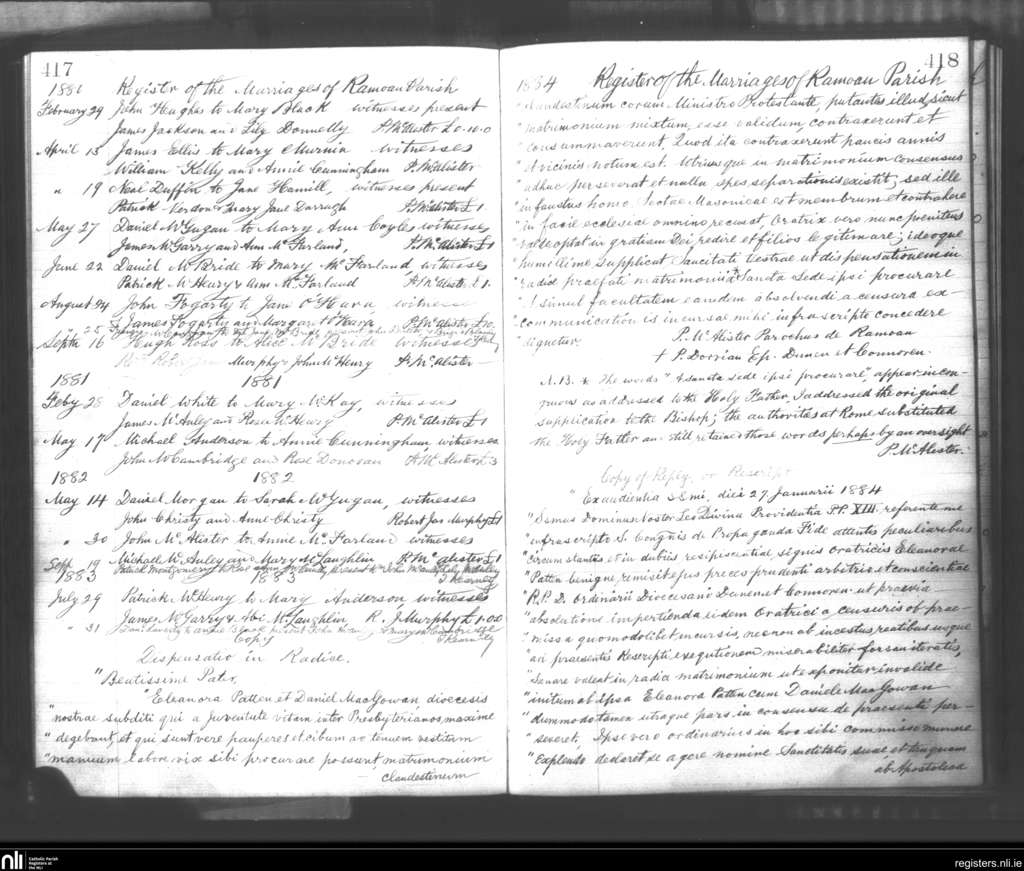 417
1881 Register of the Marriages of Ramoan Parish
February 29 John Hughes to Mary Black witnesses present
James Jackson and Lily Donnelly P. McAlister £0.10.0
April 13 James Ellis to Mary witnesses
William Kelly and Annie Cunningham P. McAlister
" 19 Neal Duffin to Jane Hamill, witnesses present
Patrick Mary Jane Darragh P. McAlister £1
May 27 Daniel McGugan to Mary Ann Coyles witnesses
James McGarry and Ann McFarland, P. McAlister £1
June 22 Daniel McBride to Mary McFarland witnesses
Patrick McHenry & Ann McFarland P. McAlister £1.
August 24 John Fogarty to Jane O'Hara, witnesses
" 25 James Fogarty and Margaret O'Hara P. McAlister
Septr 16 Hugh Ross to Alice McBride witnesses
Murphy & John McHenry P. McAlister
1881 1881
Feby 28 Daniel White to Mary McKay, witnesses
James McAuley and Rose McHenry P. McAlister £1
May 17 Michael Anderson to Annie Cunningham, witnesses
John McCambridge and Rose Donovan P. McAlister £3
1882 1882
May 14 Daniel Morgan to Sarah McGugan, witnesses
John Christy and Anne Christy Robert Jas Murphy £1
" 30 John McAlister to Annie McFarland witnesses
Michael McAuley and Mary McLaughlin P. McAlister £1
Sept 19 Patrick Montgomery to present
1883 1883
July 29 Patrick McHenry to Mary Anderson, witnesses
James McGarry & McLaughlin R. J. Murphy £1.00
" 31 present John
Copy
Dispensatio in Radice.
"Beatissime Pater,
"Eleanora Patten et Daniel MacGowan, dioecesis
"nostrae subditi qui a juventute vitam inter Presbyterianos maxime
"degebant, et qui sunt vere pauperes et cibum ac tenuem vestitum
"manuum labore vix sibi procurare possunt, matrimonium
clandestinum
418
1884 Register of the Marriages of Ramoan Parish
"clandestinum coram Ministro Protestante, putantes illud, sicut
"matrimonium mixtum, esse validum, contraxerunt et
"consummaverunt. Quod ita contraxerunt paucis annis
"et vicinis notum est. Utriusque in matrimonium consensus
"adhuc perseverat et nulla spes separationis existit; sed ille
"infaustus homo, Sectae Masonicae est membrum et contrahere
"in facie ecclesiae omnino recusat. Oratrix vero nunc penitus
"valde optat in gratiam Dei redire et filios legitimare; ideoque
"humillime supplicat Sanctitati Vestrae ut dispensationem in
"radice praefati matrimonii a Sancta Sede ipsi procurare
"& simul facultatem eamdem absolvendi a censura ex-
"communicationis incursa mihi infrascripto concedere
"dignetur. P. McAlister Parochus de Ramoan
+ P. Dorrian Ep. Dunen et Connoren.
N.B. * The words "A sancta sede ipsi procurare", appear incon-
gruous as addressed to the Holy Father. I addressed the original
supplication to the Bishop; the authorities at Rome substituted
the Holy Father and still retained those words perhaps by an oversight
P. McAlister.
Copy of Reply, or Rescript
"Ex audientia SSmi, diei 27 Januarii 1884
"SSmus Dominus Noster Leo Divina Providentia PP. XIII. referente me
"infrascripto S. Congnis de Propaganda Fide attentis peculiaribus
"circumstantiis et in dubiis resipiscentiae signis oratricis Eleanorae
"Patten benigne remisit ejus preces prudenti arbitrio et conscientiae
"R. P. D. Ordinarii Dioecesani Dunen et Connoren ut praevia
"absolutione impertienda eidem Oratrici a censuris ob prae-
"missa quomodolibet incursis, necnon ab incestus reatibus usque
"ad praesentis Rescripti exequutionem miserabiliter forsan iteratis,
"Sanare valeat in radice matrimonium ut exponitur invalide
"initum ab ipsa Eleanora Patten cum Daniele MacGowan
"dummodo tamen utraque pars in consensu de praesenti per-
"severet. Ipse vero ordinarius in hoc sibi commisso munere
"explendo declaret se agere nomine Sanctitatis suae et tanquam
ab Apostolica
nli
Catholic Parish
Registers at
the NLI
registers.nli.ie